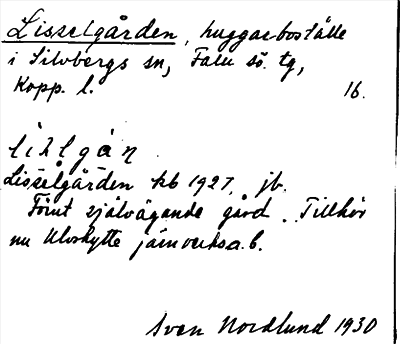 Lisselgården, huggarboställe
i Silvbergs sn, Falu sö. tg,
Kopp. l. 16.
Lisselgården kb 1927, jb.
Förut självägande gård. Tillhör
nu Ulvshytte järnverks a.b.
Sven Nordlund 1930